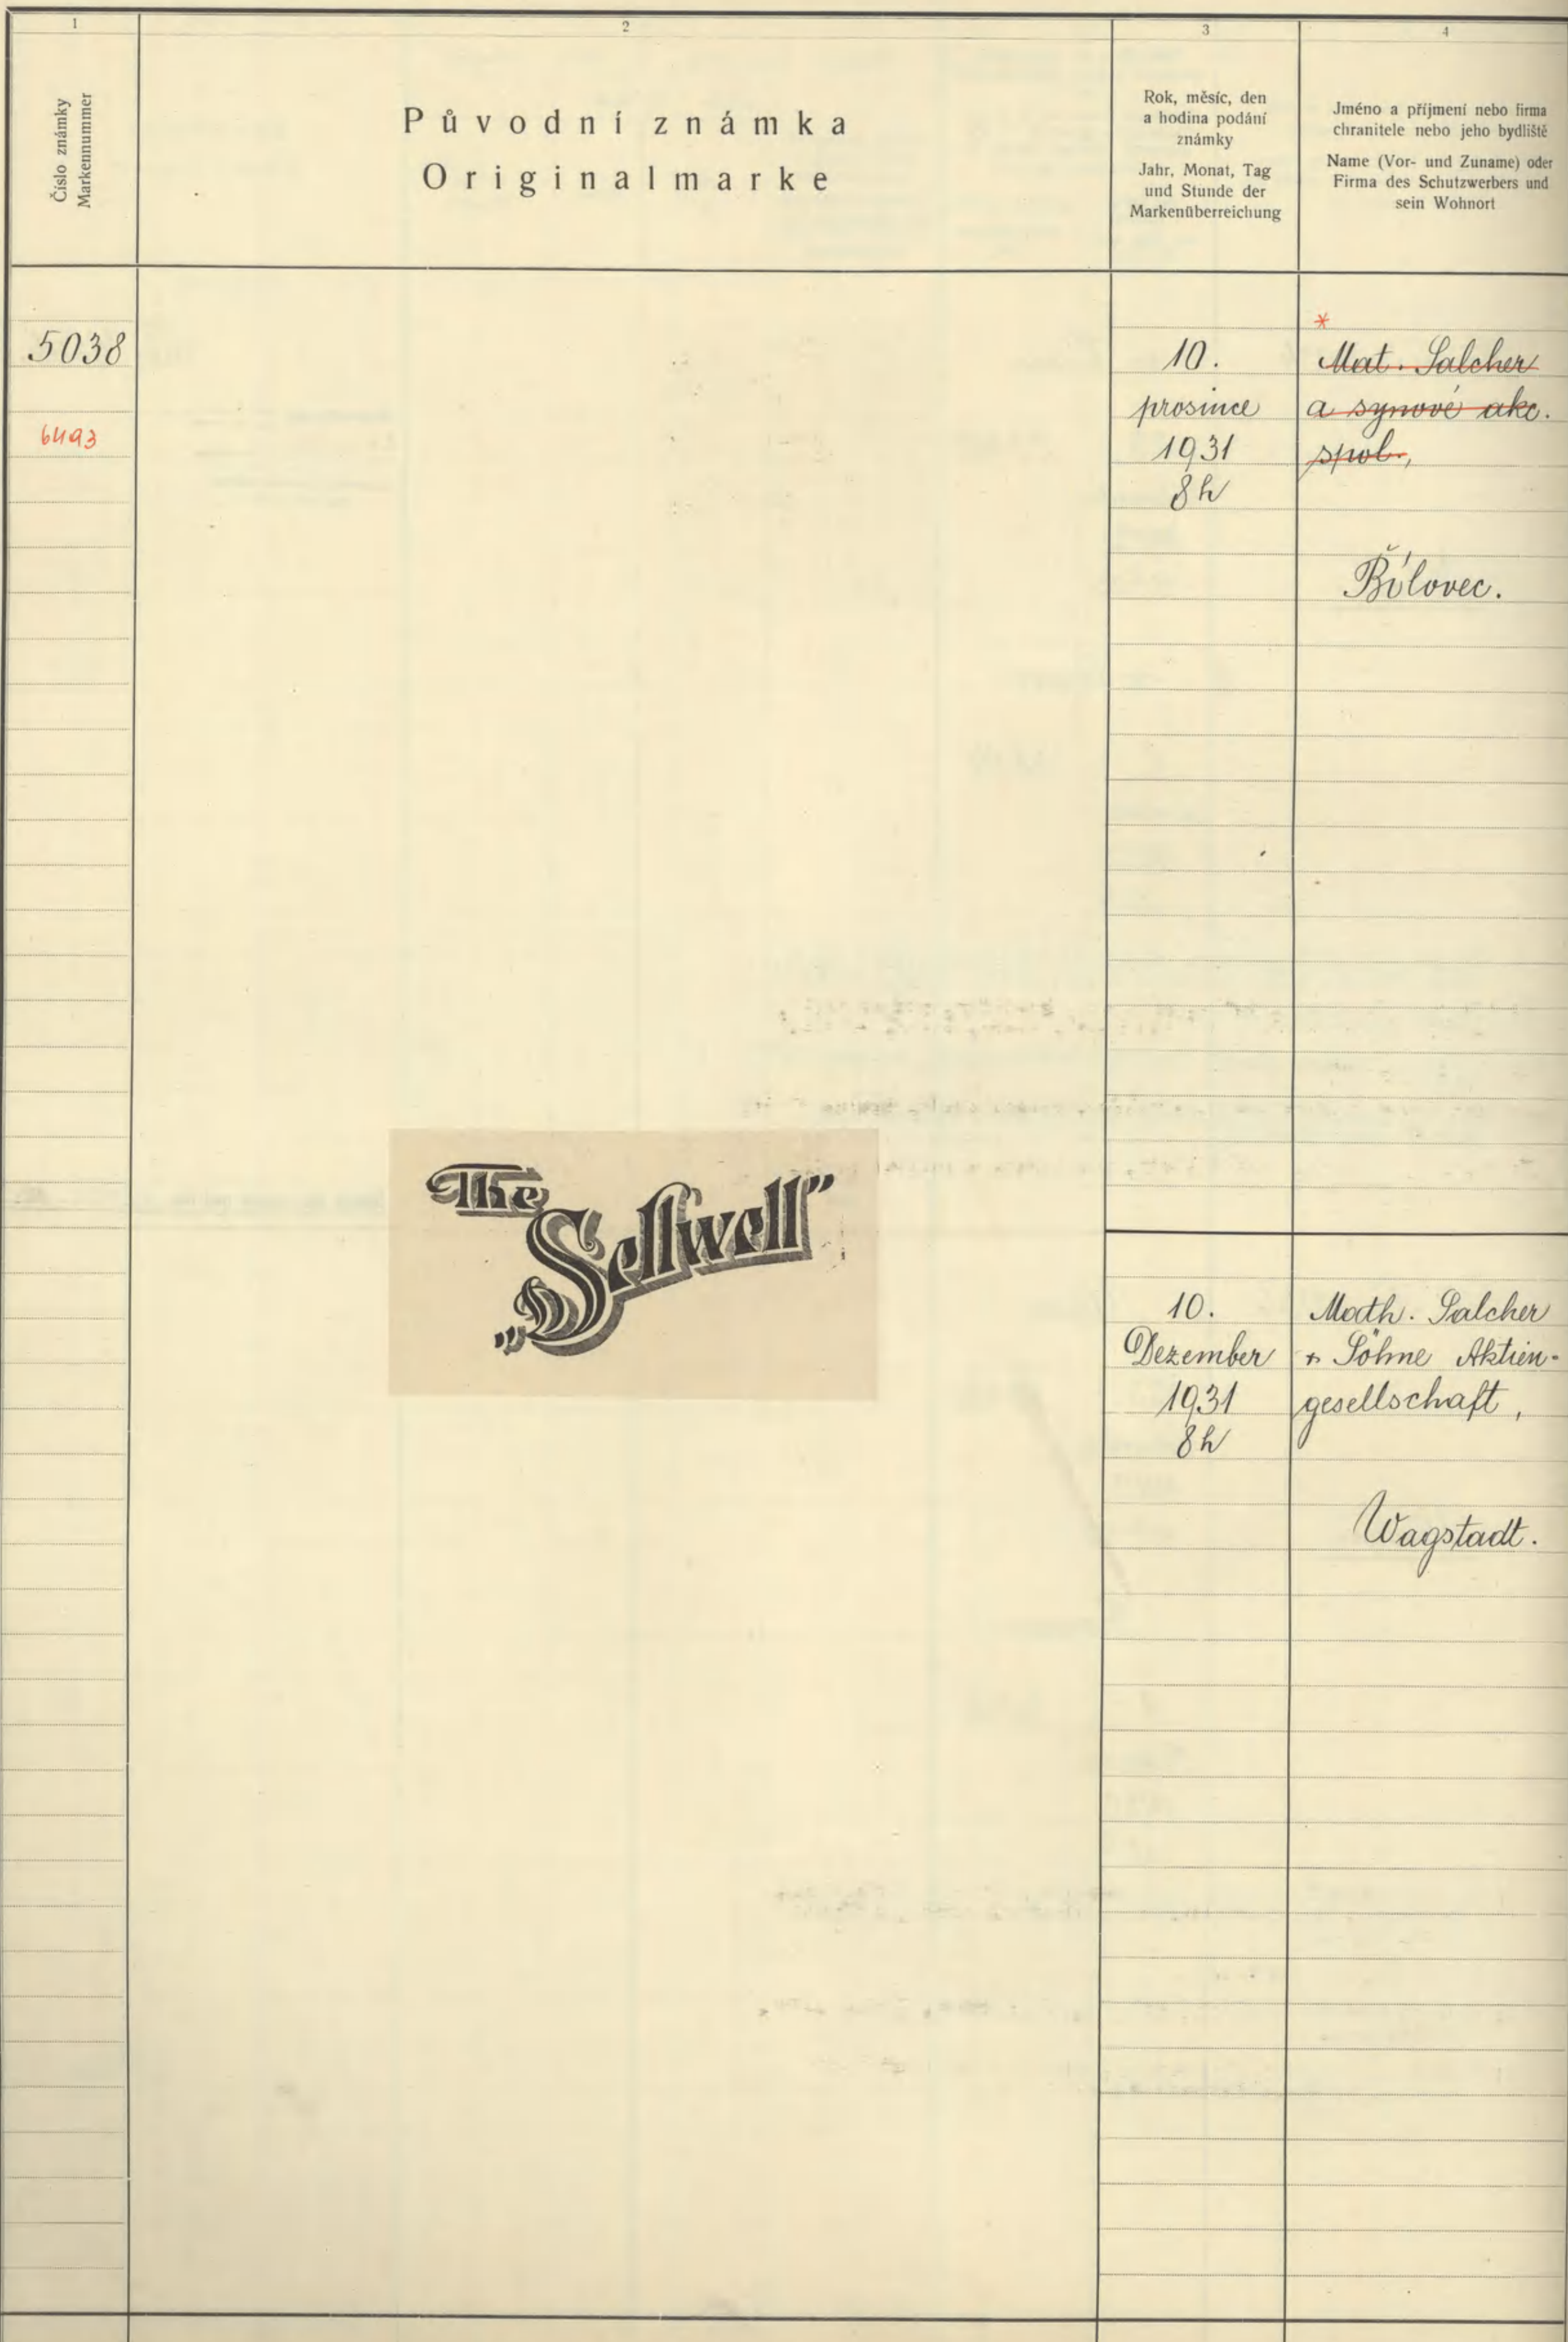 1
2
3
4
Číslo známky
Markennummer
Původní známka
Originalmarke
Rok, měsíc, den
a hodina podání
známky
Jahr, Monat, Tag
und Stunde der
Markenüberreichung
Jméno a příjmení nebo firma
chranitele nebo jeho bydliště
Name (Vor- und Zuname) oder
Firma des Schutzwerbers und
sein Wohnort
5038
6493
10.
prosince
1931
8h
*
Mat. Salcher
a synové akc.
spol.,
Bílovec.
The
„Sellwell"
10.
Dezember
1931
8h
Math. Salcher
+ Söhne Aktien-
gesellschaft,
Wagstadt.